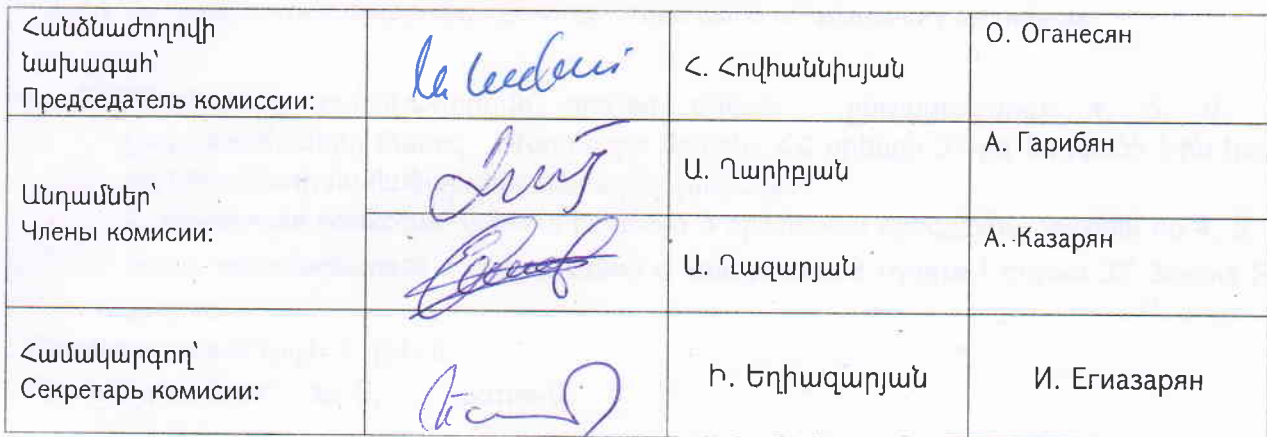 Հանձնաժողովի
նախագահ՝
Председатель комиссии:
Հ. Հովհաննիսյան
О. Оганесян
Անդամներ՝
Члены комисии:
Ա. Ղարիբյան
А. Гарибян
Ա. Ղազարյան
А. Казарян
Համակարգող՝
Секретарь комисии:
Ի. Եղիազարյան
И. Егиазарян